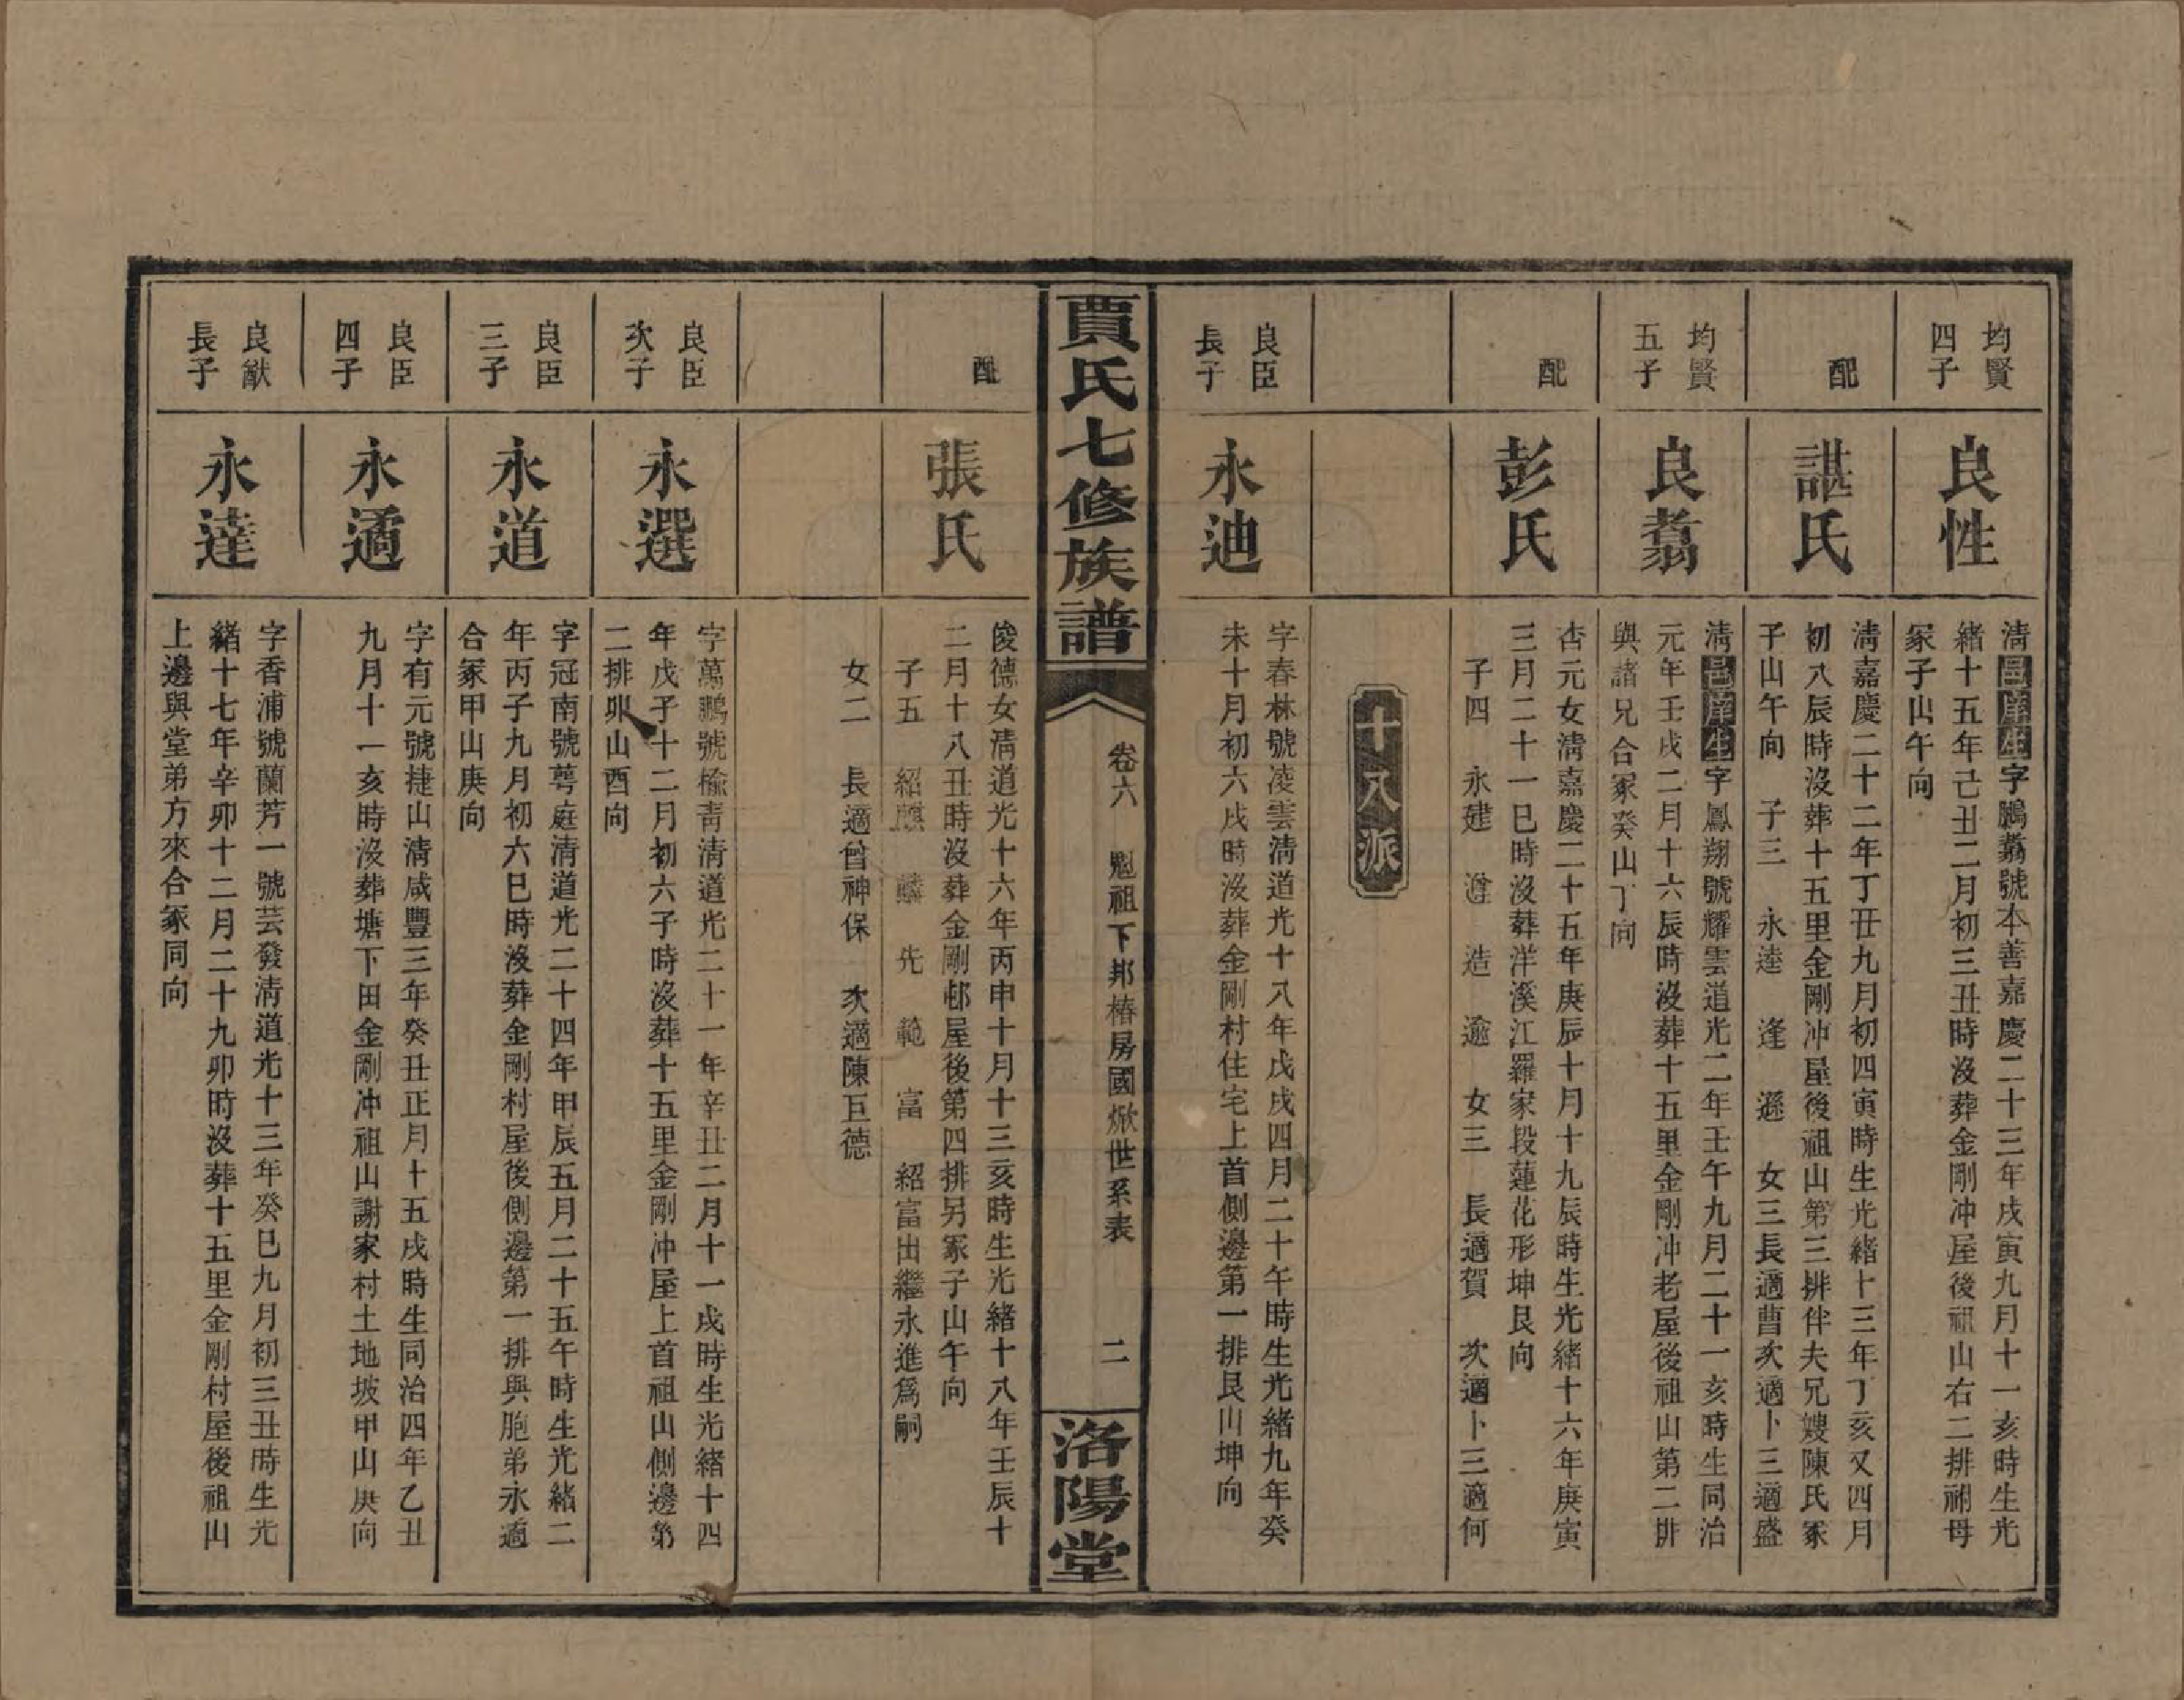 均賢
四子
良性
淸邑庠生字鵬翥號本善嘉慶二十三年戊寅九月十一亥時生光
緒十五年己丑二月初三丑時沒葬金剛冲屋後祖山右二排祔母
冢子山午向
配
諶氏
淸嘉慶二十二年丁丑九月初四寅時生光緒十三年丁亥又四月
初八辰時沒葬十五里金剛冲屋後祖山第三排伴夫兄嫂陳氏冢
子山午向 子三 永逵 逢 遜 女三長適曹次適卜三適盛
均賢
五子
良翥
淸邑庠生字鳳翔號耀雲道光二年壬午九月二十一亥時生同治
元年壬戌二月十六辰時沒葬十五里金剛冲老屋後祖山第二排
與諸兄合冢癸山丁向
配
彭氏
杏元女淸嘉慶二十五年庚辰十月十九辰時生光緒十六年庚寅
三月二十一巳時沒葬洋溪江羅家段蓮花形坤艮向
子四 永建 造 逾 女三 長適賀 次適卜三適何
十八派
良臣
長子
永迪
字春林號凌雲淸道光十八年戊戌四月二十午時生光緒九年癸
未十月初六戌時沒葬金剛村住宅上首側邊第一排艮山坤向
賈氏七修族譜
卷六 魁祖下邦椿房國焮世系表 二
洛陽堂
配
張氏
俊德女淸道光十六年丙申十月十三亥時生光緒十八年壬辰十
二月十八丑時沒葬金剛邨屋後第四排另冢子山午向
子五 紹麒 麟 先 範 富 紹富出繼永進爲嗣
女二 長適曾神保 次適陳巨德
良臣
次子
永選
字萬鵬號楡靑淸道光二十一年辛丑二月十一戌時生光緒十四
年戊子十二月初六子時沒葬十五里金剛冲屋上首祖山側邊第
二排卯山酉向
良臣
三子
永道
字冠南號蕚庭淸道光二十四年甲辰五月二十五午時生光緒二
年丙子九月初六巳時沒葬金剛村屋後側邊第一排與胞弟永適
合冢甲山庚向
良臣
四子
永適
字有元號捷山淸咸豐三年癸丑正月十五戌時生同治四年乙丑
九月十一亥時沒葬塘下田金剛冲祖山謝家村土地坡甲山庚向
良猷
長子
永達
字香浦號蘭芳一號芸發淸道光十三年癸巳九月初三丑時生光
緒十七年辛卯十二月二十九卯時沒葬十五里金剛村屋後祖山
上邊與堂弟方來合冢同向